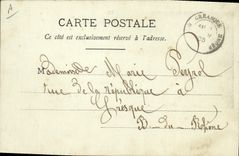 A
CARTE POSTALE
Ce côté est exclusivement réservé à l'adresse.
Mademoiselle Marie Peyrol
rue de la république à
Gréasque
B-du-Rhône